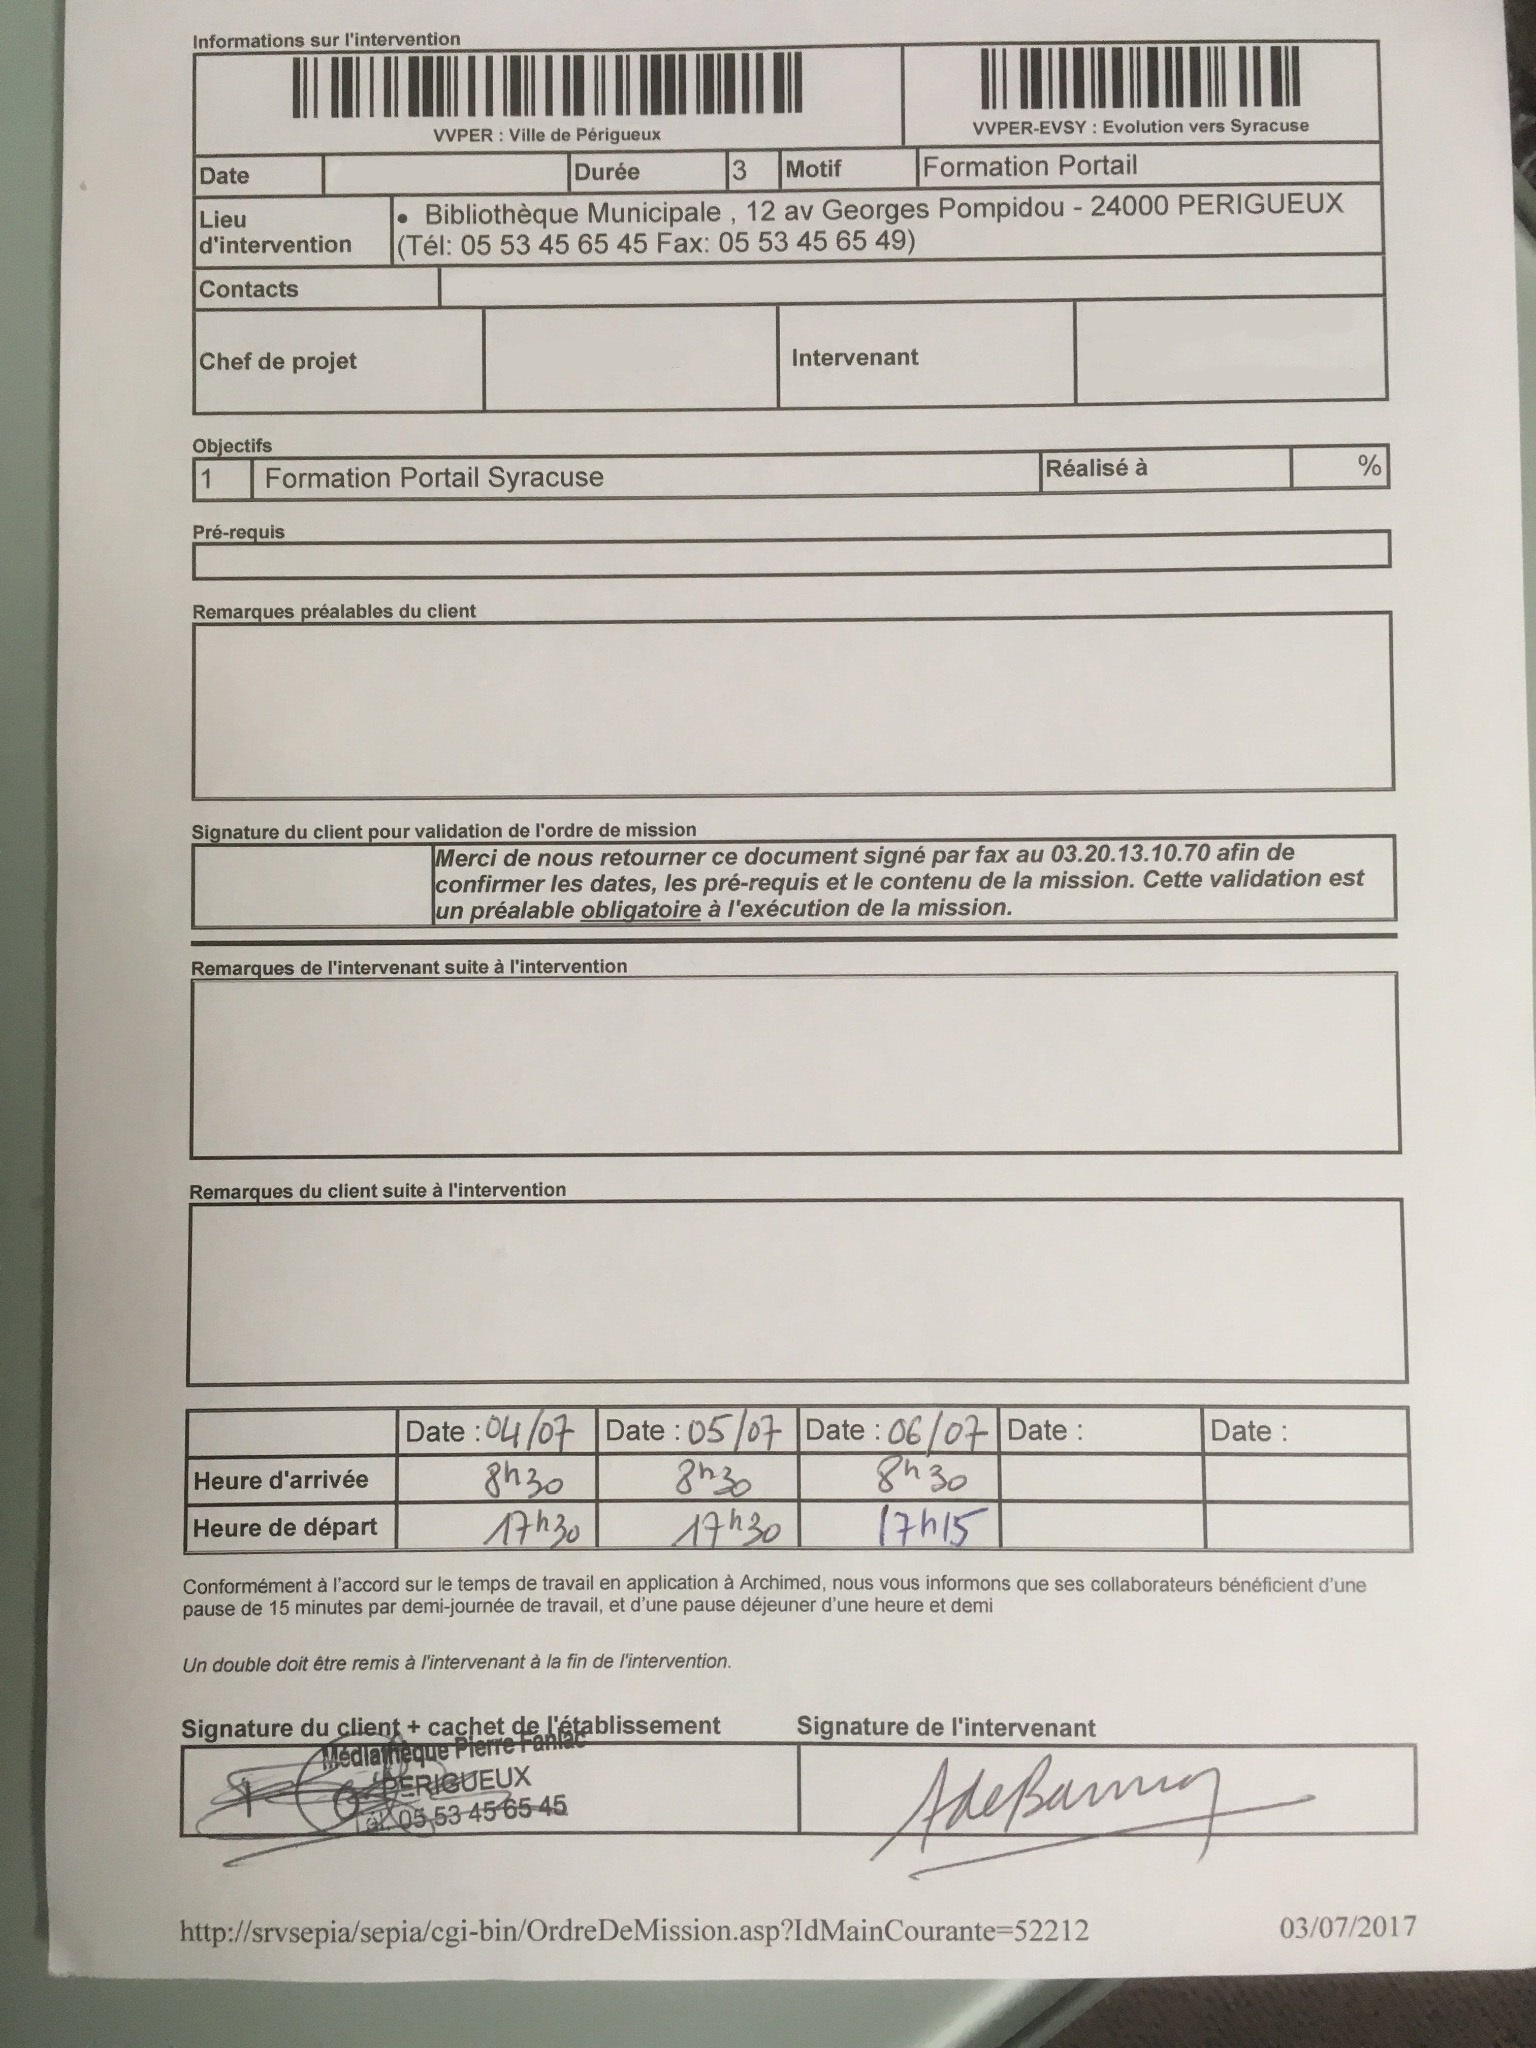 Informations sur l'intervention
VVPER : Ville de Périgueux
VVPER-EVSY : Evolution vers Syracuse
Date Durée 3 Motif Formation Portail
Lieu d'intervention
• Bibliothèque Municipale , 12 av Georges Pompidou - 24000 PERIGUEUX
(Tél: 05 53 45 65 45 Fax: 05 53 45 65 49)
Contacts
Chef de projet Intervenant
Objectifs
1 Formation Portail Syracuse Réalisé à %
Pré-requis
Remarques préalables du client
Signature du client pour validation de l'ordre de mission
Merci de nous retourner ce document signé par fax au 03.20.13.10.70 afin de
confirmer les dates, les pré-requis et le contenu de la mission. Cette validation est
un préalable obligatoire à l'exécution de la mission.
Remarques de l'intervenant suite à l'intervention
Remarques du client suite à l'intervention
Date : 04/07 Date : 05/07 Date : 06/07 Date : Date :
Heure d'arrivée 8h30 8h30 8h30
Heure de départ 17h30 17h30 17h15
Conformément à l'accord sur le temps de travail en application à Archimed, nous vous informons que ses collaborateurs bénéficient d'une
pause de 15 minutes par demi-journée de travail, et d'une pause déjeuner d'une heure et demi
Un double doit être remis à l'intervenant à la fin de l'intervention.
Signature du client + cachet de l'établissement Signature de l'intervenant
Médiathèque Pierre Fanlac
PERIGUEUX
Tél. 05 53 45 65 45
http://srvsepia/sepia/cgi-bin/OrdreDeMission.asp?IdMainCourante=52212 03/07/2017